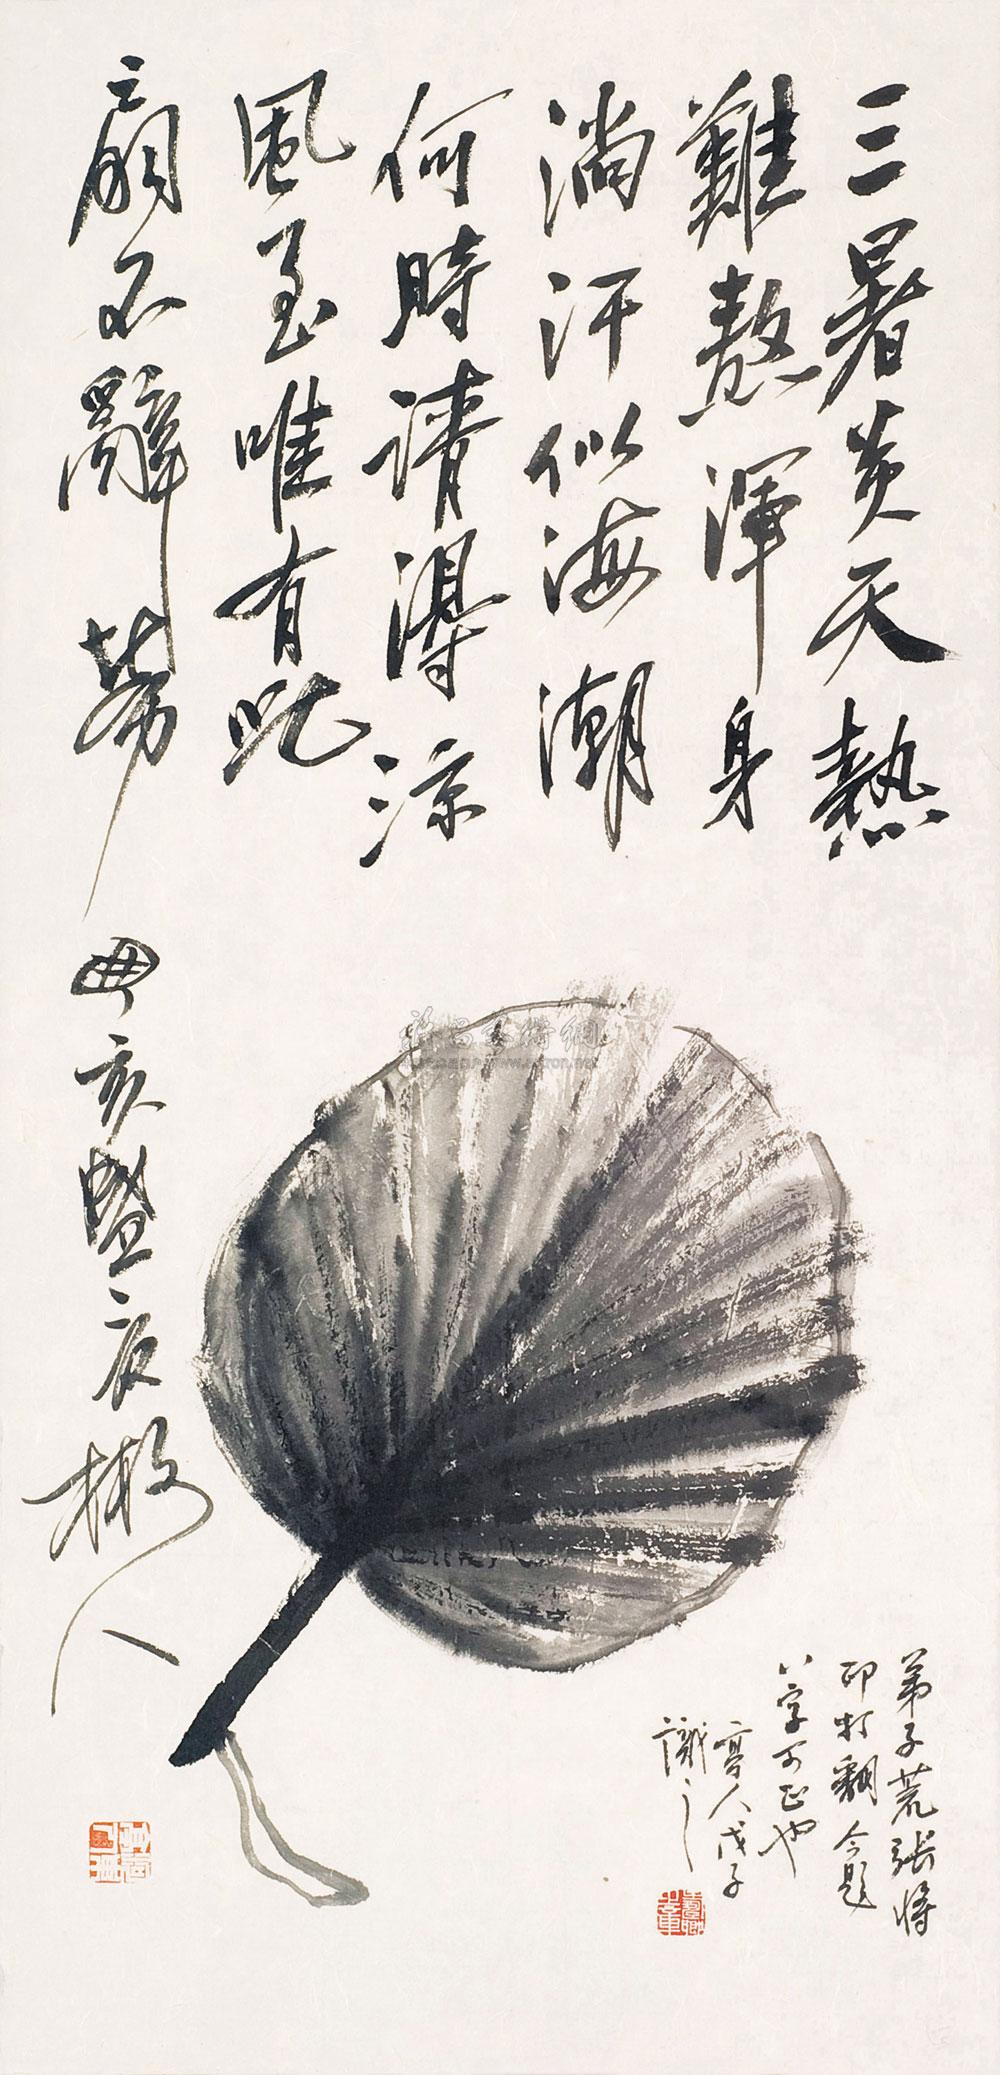 三暑炎天熱
難熬渾身
淌汗似海潮
何時請得涼
風至唯有此
扇不辭勞
亥盛夏 人
弟子荒張將
印打翻今題
八字可正也
亭人戊子
識之
www.artron.net